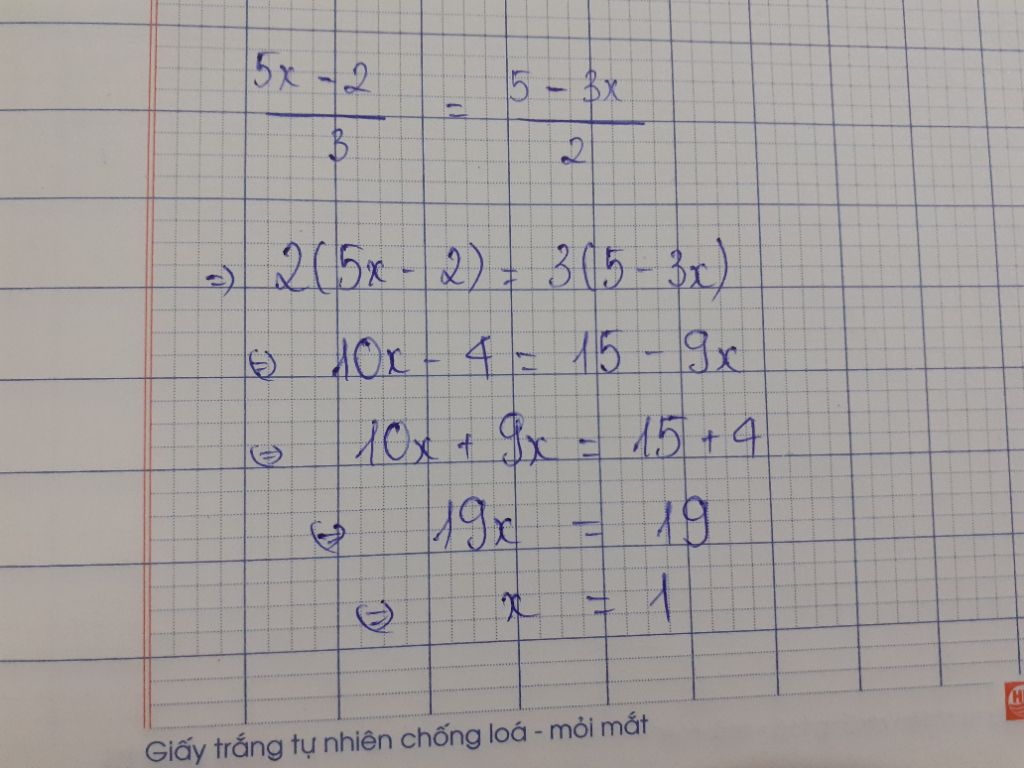 5x - 2 / 3 = 5 - 3x / 2
=> 2(5x - 2) = 3(5 - 3x)
<=> 10x - 4 = 15 - 9x
<=> 10x + 9x = 15 + 4
<=> 19x = 19
<=> x = 1
Giấy trắng tự nhiên chống loá - mỏi mắt